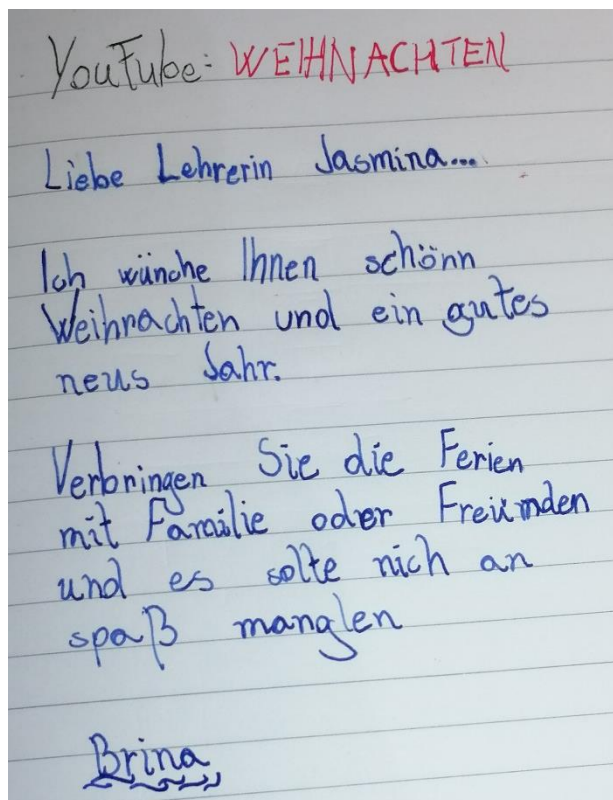 YouTube: WEIHNACHTEN
Liebe Lehrerin Jasmina...
Ich wünche Ihnen schönn
Weihnachten und ein gutes
neus Jahr.
Verbringen Sie die Ferien
mit Familie oder Freunden
und es solte nich an
spaß manglen
Brina